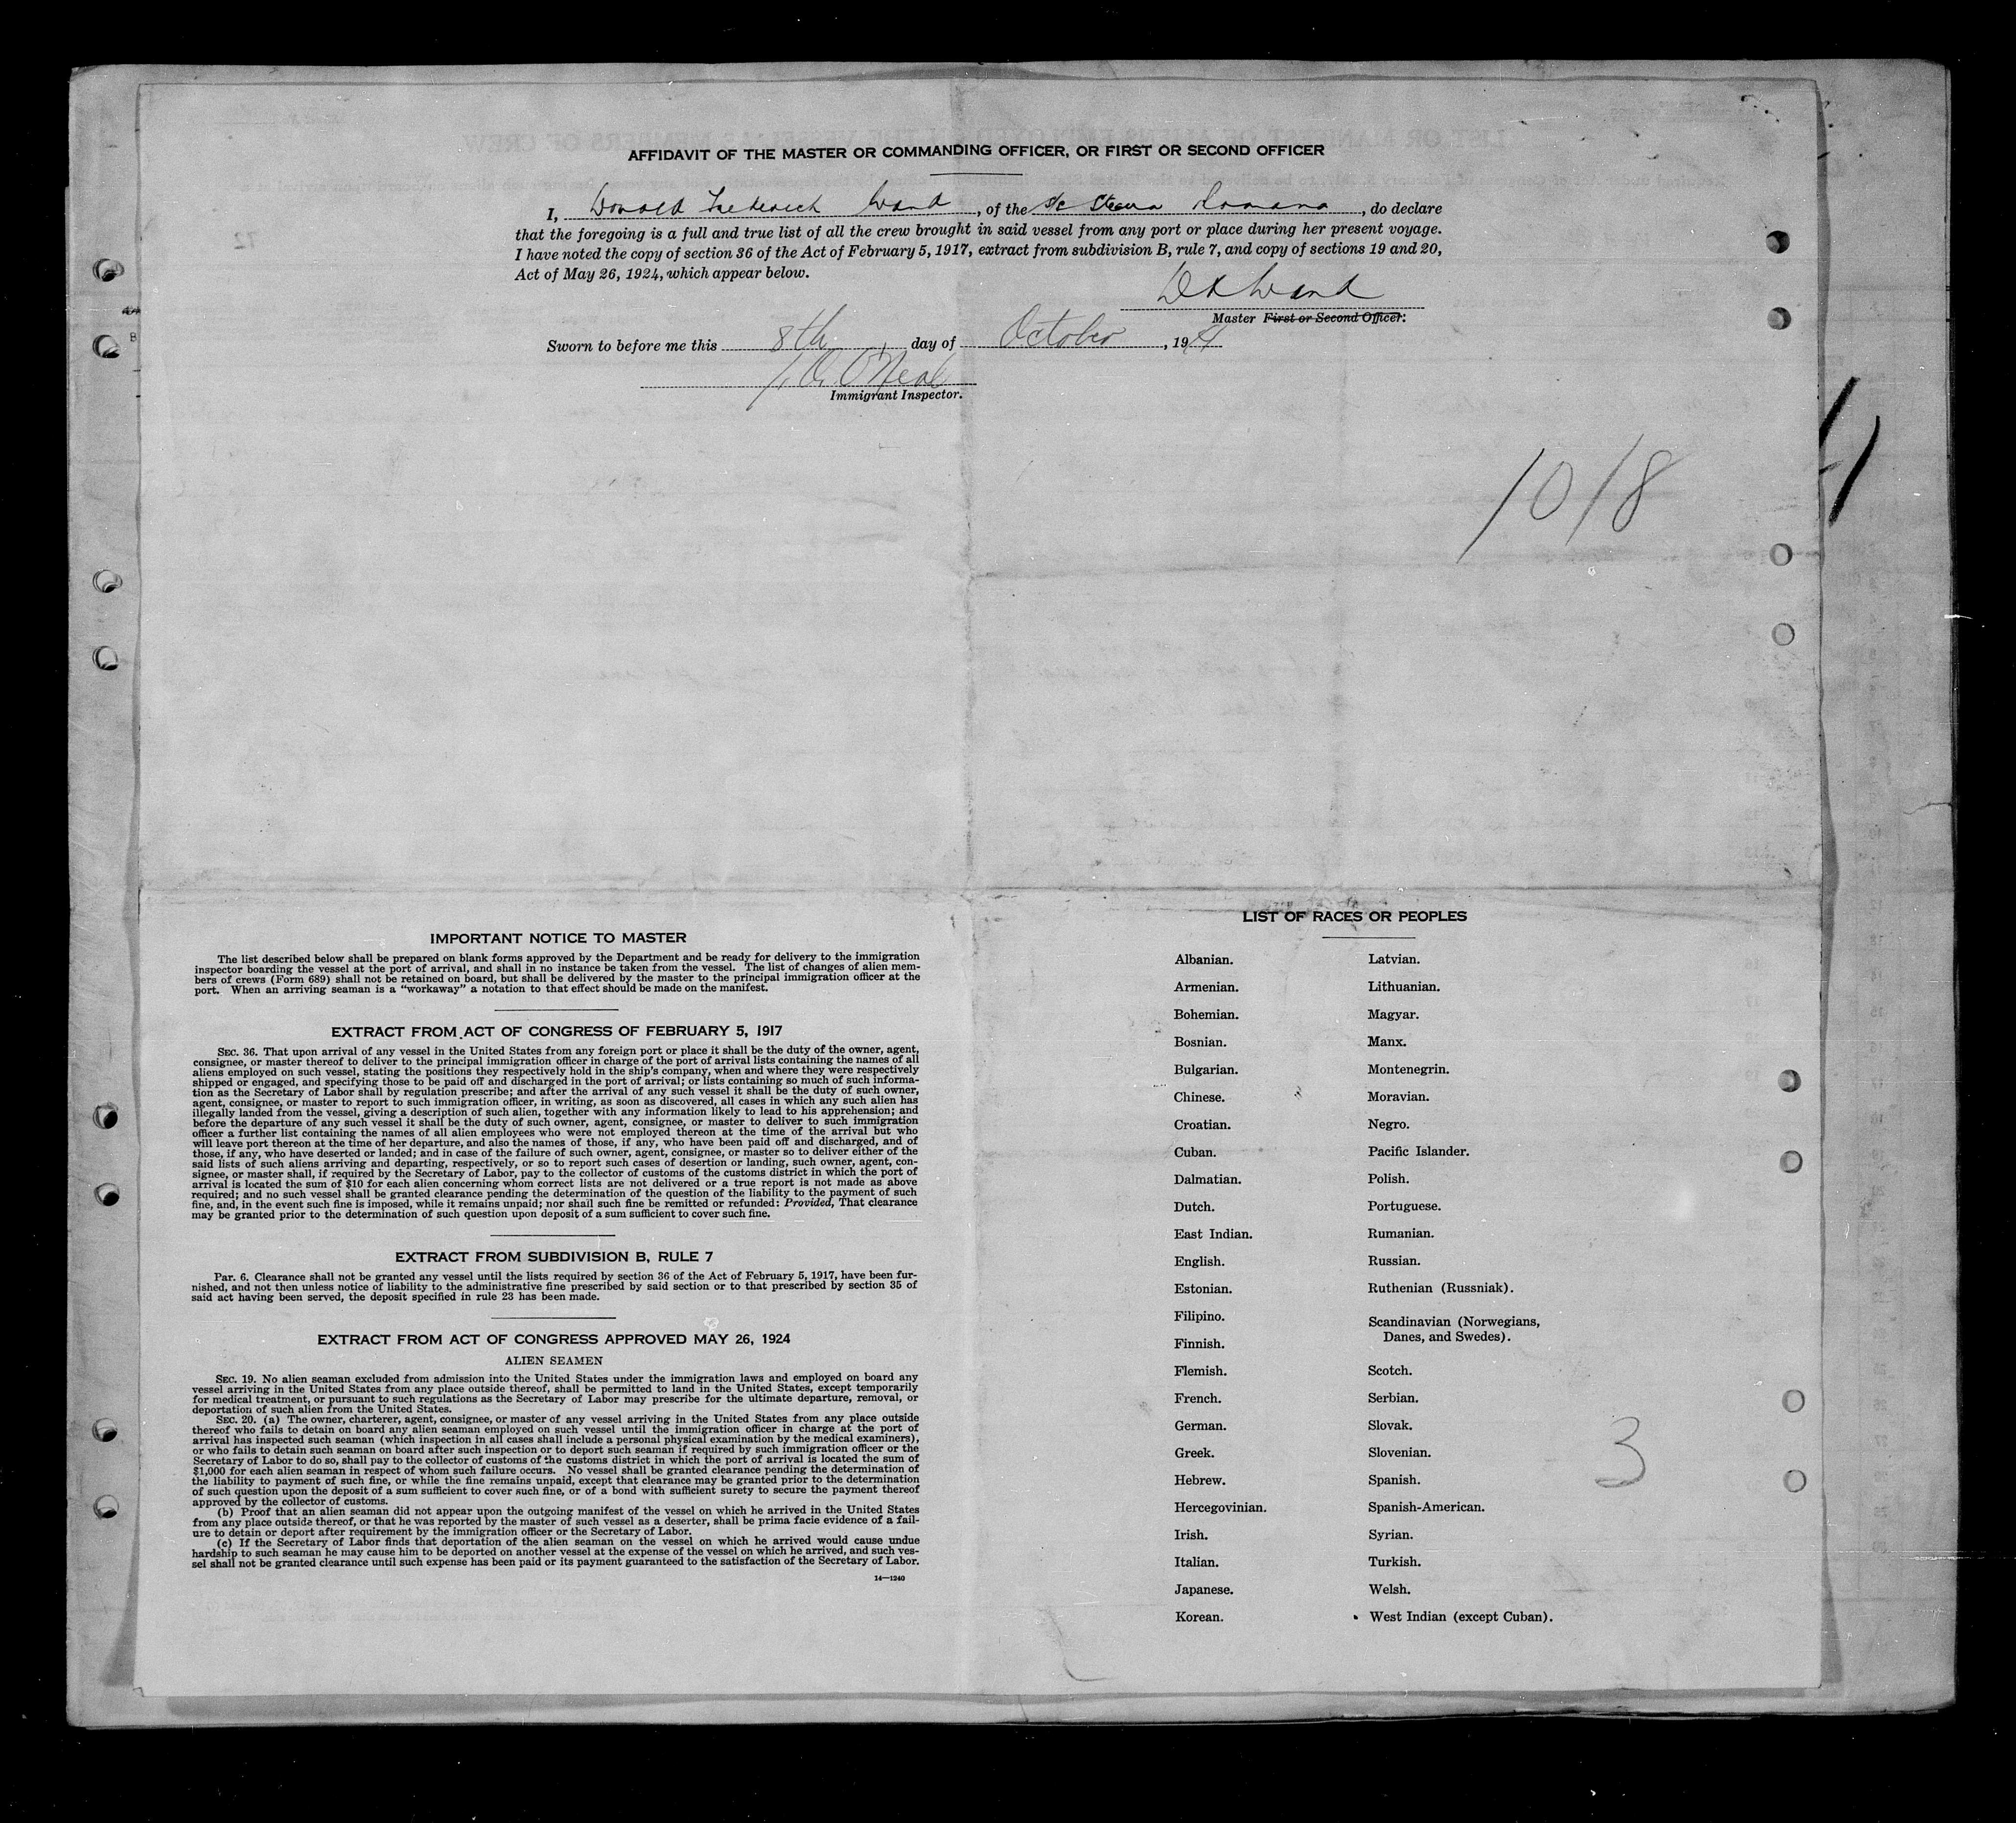 AFFIDAVIT OF THE MASTER OR COMMANDING OFFICER, OR FIRST OR SECOND OFFICER
I, Donald Frederick Ward, of the Romana, do declare
that the foregoing is a full and true list of all the crew brought in said vessel from any port or place during her present voyage.
I have noted the copy of section 36 of the Act of February 5, 1917, extract from subdivision B, rule 7, and copy of sections 19 and 20,
Act of May 26, 1924, which appear below.
Master First or Second Officer:
Sworn to before me this 8th day of October, 19
O'Neal
Immigrant Inspector.
10/8
IMPORTANT NOTICE TO MASTER
The list described below shall be prepared on blank forms approved by the Department and be ready for delivery to the immigration
inspector boarding the vessel at the port of arrival, and shall in no instance be taken from the vessel. The list of changes of alien mem-
bers of crews (Form 689) shall not be retained on board, but shall be delivered by the master to the principal immigration officer at the
port. When an arriving seaman is a "workaway" a notation to that effect should be made on the manifest.
EXTRACT FROM ACT OF CONGRESS OF FEBRUARY 5, 1917
SEC. 36. That upon arrival of any vessel in the United States from any foreign port or place it shall be the duty of the owner, agent,
consignee, or master thereof to deliver to the principal immigration officer in charge of the port of arrival lists containing the names of all
aliens employed on such vessel, stating the positions they respectively hold in the ship's company, when and where they were respectively
shipped or engaged, and specifying those to be paid off and discharged in the port of arrival; or lists containing so much of such informa-
tion as the Secretary of Labor shall by regulation prescribe; and after the arrival of any such vessel it shall be the duty of such owner,
agent, consignee, or master to report to such immigration officer, in writing, as soon as discovered, all cases in which any such alien has
illegally landed from the vessel, giving a description of such alien, together with any information likely to lead to his apprehension; and
before the departure of any such vessel it shall be the duty of such owner, agent, consignee, or master to deliver to such immigration
officer a further list containing the names of all alien employees who were not employed thereon at the time of the arrival but who
will leave port thereon at the time of her departure, and also the names of those, if any, who have been paid off and discharged, and of
those, if any, who have deserted or landed; and in case of the failure of such owner, agent, consignee, or master so to deliver either of the
said lists of such aliens arriving and departing, respectively, or so to report such cases of desertion or landing, such owner, agent, con-
signee, or master shall, if required by the Secretary of Labor, pay to the collector of customs of the customs district in which the port of
arrival is located the sum of $10 for each alien concerning whom correct lists are not delivered or a true report is not made as above
required; and no such vessel shall be granted clearance pending the determination of the question of the liability to the payment of such
fine, and, in the event such fine is imposed, while it remains unpaid; nor shall such fine be remitted or refunded: Provided, That clearance
may be granted prior to the determination of such question upon deposit of a sum sufficient to cover such fine.
EXTRACT FROM SUBDIVISION B, RULE 7
Par. 6. Clearance shall not be granted any vessel until the lists required by section 36 of the Act of February 5, 1917, have been fur-
nished, and not then unless notice of liability to the administrative fine prescribed by said section or to that prescribed by section 35 of
said act having been served, the deposit specified in rule 23 has been made.
EXTRACT FROM ACT OF CONGRESS APPROVED MAY 26, 1924
ALIEN SEAMEN
SEC. 19. No alien seaman excluded from admission into the United States under the immigration laws and employed on board any
vessel arriving in the United States from any place outside thereof, shall be permitted to land in the United States, except temporarily
for medical treatment, or pursuant to such regulations as the Secretary of Labor may prescribe for the ultimate departure, removal, or
deportation of such alien from the United States.
SEC. 20. (a) The owner, charterer, agent, consignee, or master of any vessel arriving in the United States from any place outside
thereof who fails to detain on board any alien seaman employed on such vessel until the immigration officer in charge at the port of
arrival has inspected such seaman (which inspection in all cases shall include a personal physical examination by the medical examiners),
or who fails to detain such seaman on board after such inspection or to deport such seaman if required by such immigration officer or the
Secretary of Labor to do so, shall pay to the collector of customs of the customs district in which the port of arrival is located the sum of
$1,000 for each alien seaman in respect of whom such failure occurs. No vessel shall be granted clearance pending the determination of
the liability to payment of such fine, or while the fine remains unpaid, except that clearance may be granted prior to the determination
of such question upon the deposit of a sum sufficient to cover such fine, or of a bond with sufficient surety to secure the payment thereof
approved by the collector of customs.
(b) Proof that an alien seaman did not appear upon the outgoing manifest of the vessel on which he arrived in the United States
from any place outside thereof, or that he was reported by the master of such vessel as a deserter, shall be prima facie evidence of a fail-
ure to detain or deport after requirement by the immigration officer or the Secretary of Labor.
(c) If the Secretary of Labor finds that deportation of the alien seaman on the vessel on which he arrived would cause undue
hardship to such seaman he may cause him to be deported on another vessel at the expense of the vessel on which he arrived, and such ves-
sel shall not be granted clearance until such expense has been paid or its payment guaranteed to the satisfaction of the Secretary of Labor.
14—1240
LIST OF RACES OR PEOPLES
Albanian.
Armenian.
Bohemian.
Bosnian.
Bulgarian.
Chinese.
Croatian.
Cuban.
Dalmatian.
Dutch.
East Indian.
English.
Estonian.
Filipino.
Finnish.
Flemish.
French.
German.
Greek.
Hebrew.
Hercegovinian.
Irish.
Italian.
Japanese.
Korean.
Latvian.
Lithuanian.
Magyar.
Manx.
Montenegrin.
Moravian.
Negro.
Pacific Islander.
Polish.
Portuguese.
Rumanian.
Russian.
Ruthenian (Russniak).
Scandinavian (Norwegians,
Danes, and Swedes).
Scotch.
Serbian.
Slovak.
Slovenian.
Spanish.
Spanish-American.
Syrian.
Turkish.
Welsh.
West Indian (except Cuban).
3